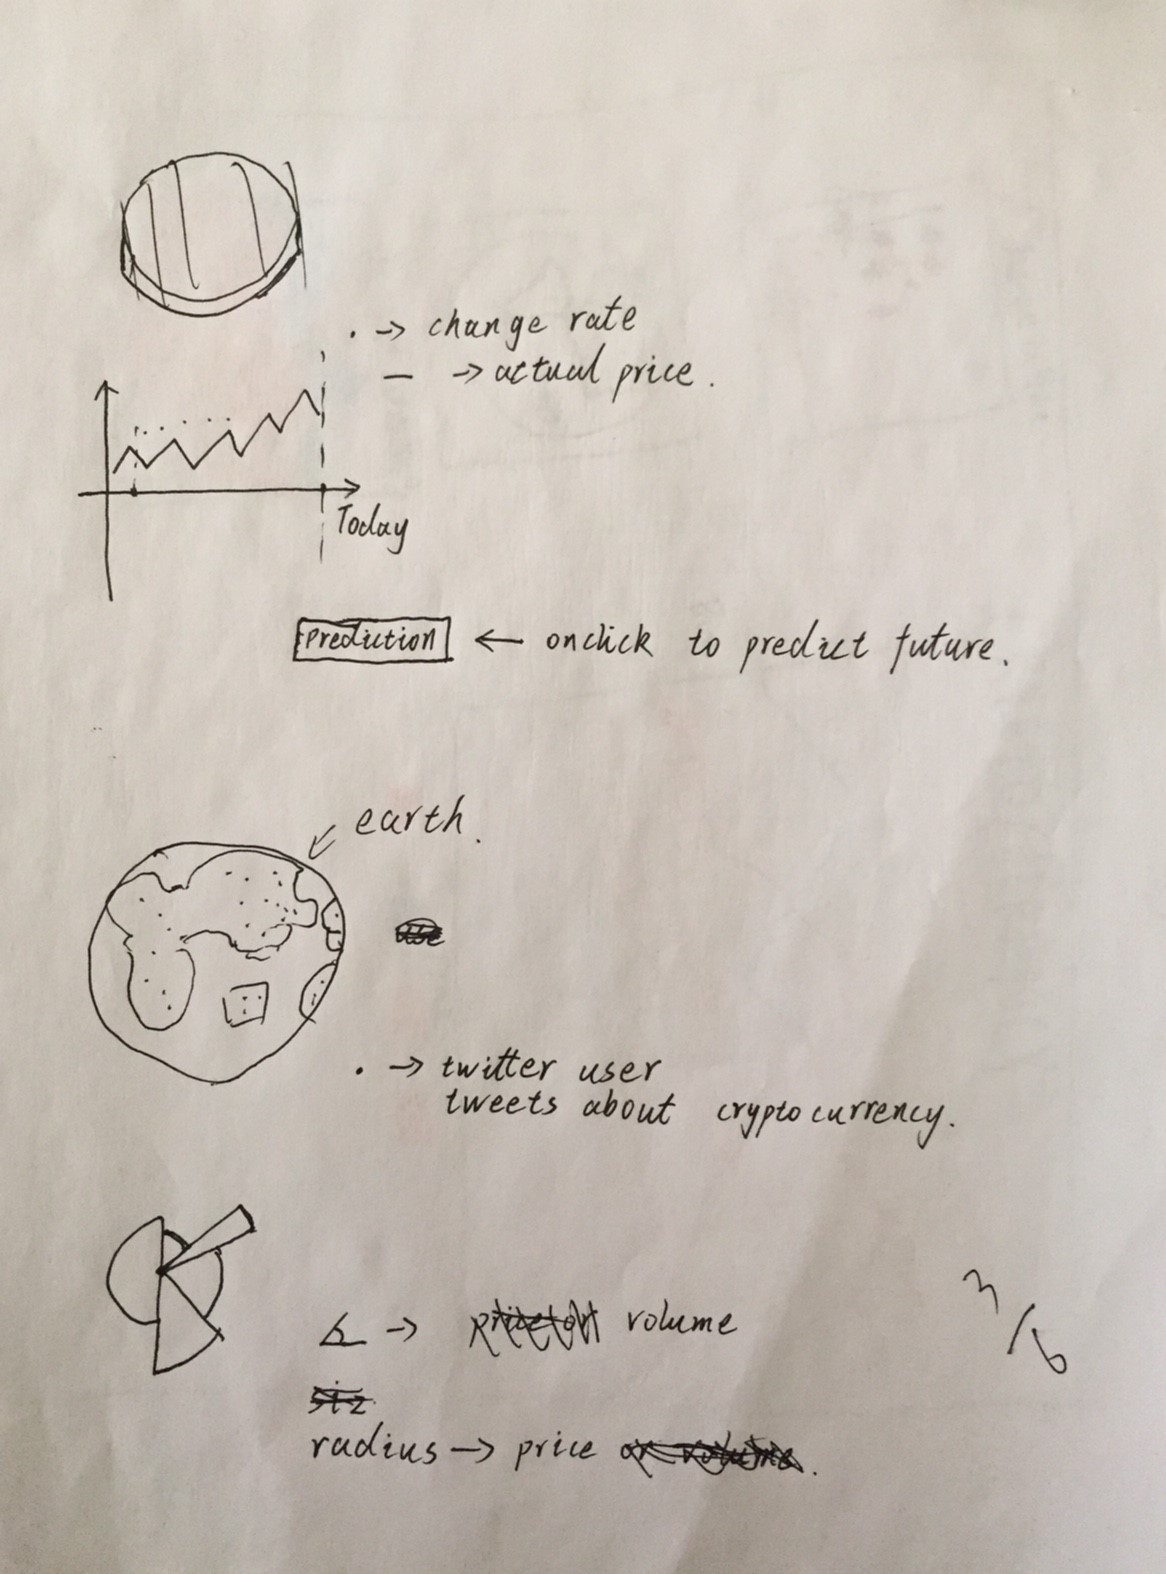 . → change rate
— → actual price.
Today
Prediction ← onclick to predict future.
earth.
. → twitter user
tweets about cryptocurrency.
∠ → volume
radius → price .
3/6